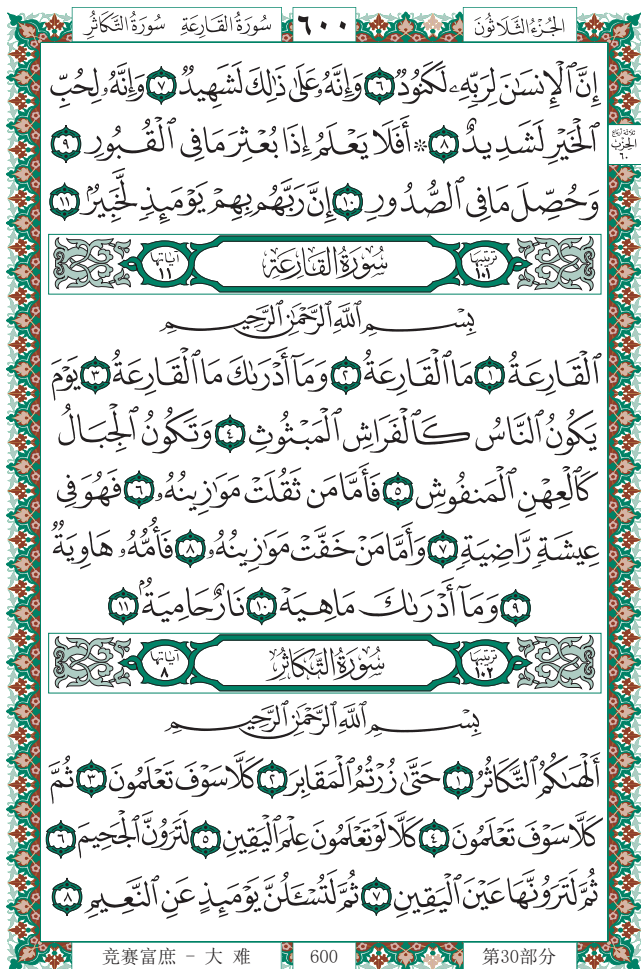 الجُزْءُ الثَّلَاثُونَ ٦٠٠ سُورَةُ القَارِعَةِ سُورَةُ التَّكَاثُرِ
إِنَّ ٱلْإِنسَٰنَ لِرَبِّهِۦ لَكَنُودٌ ٦ وَإِنَّهُۥ عَلَىٰ ذَٰلِكَ لَشَهِيدٌ ٧ وَإِنَّهُۥ لِحُبِّ
ٱلْخَيْرِ لَشَدِيدٌ ٨ ۞ أَفَلَا يَعْلَمُ إِذَا بُعْثِرَ مَا فِى ٱلْقُبُورِ ٩
ثلاثة أرباع
الحزب
٦٠
وَحُصِّلَ مَا فِى ٱلصُّدُورِ ١٠ إِنَّ رَبَّهُم بِهِمْ يَوْمَئِذٍ لَّخَبِيرٌۢ ١١
ترتيبها ١٠١ سُورَةُ القَارِعَةِ آياتها ١١
بِسْمِ ٱللَّهِ ٱلرَّحْمَٰنِ ٱلرَّحِيمِ
ٱلْقَارِعَةُ ١ مَا ٱلْقَارِعَةُ ٢ وَمَآ أَدْرَىٰكَ مَا ٱلْقَارِعَةُ ٣ يَوْمَ
يَكُونُ ٱلنَّاسُ كَٱلْفَرَاشِ ٱلْمَبْثُوثِ ٤ وَتَكُونُ ٱلْجِبَالُ
كَٱلْعِهْنِ ٱلْمَنفُوشِ ٥ فَأَمَّا مَن ثَقُلَتْ مَوَٰزِينُهُۥ ٦ فَهُوَ فِى
عِيشَةٍ رَّاضِيَةٍ ٧ وَأَمَّا مَنْ خَفَّتْ مَوَٰزِينُهُۥ ٨ فَأُمُّهُۥ هَاوِيَةٌ
٩ وَمَآ أَدْرَىٰكَ مَا هِيَهْ ١٠ نَارٌ حَامِيَةٌۢ ١١
ترتيبها ١٠٢ سُورَةُ التَّكَاثُرِ آياتها ٨
بِسْمِ ٱللَّهِ ٱلرَّحْمَٰنِ ٱلرَّحِيمِ
أَلْهَىٰكُمُ ٱلتَّكَاثُرُ ١ حَتَّىٰ زُرْتُمُ ٱلْمَقَابِرَ ٢ كَلَّا سَوْفَ تَعْلَمُونَ ٣ ثُمَّ
كَلَّا سَوْفَ تَعْلَمُونَ ٤ كَلَّا لَوْ تَعْلَمُونَ عِلْمَ ٱلْيَقِينِ ٥ لَتَرَوُنَّ ٱلْجَحِيمَ ٦
ثُمَّ لَتَرَوُنَّهَا عَيْنَ ٱلْيَقِينِ ٧ ثُمَّ لَتُسْـَٔلُنَّ يَوْمَئِذٍ عَنِ ٱلنَّعِيمِ ٨
竞赛富庶 - 大 难 600 第30部分